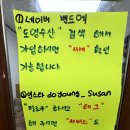 ①네이버 밴드에
"도영수산" 검색 해서
가입하시면 "시세" 확인
가능합니다.
②인스타 doyoung_susan
"팔로우" 하시고 "태그"
해 주시면 "서비스"도